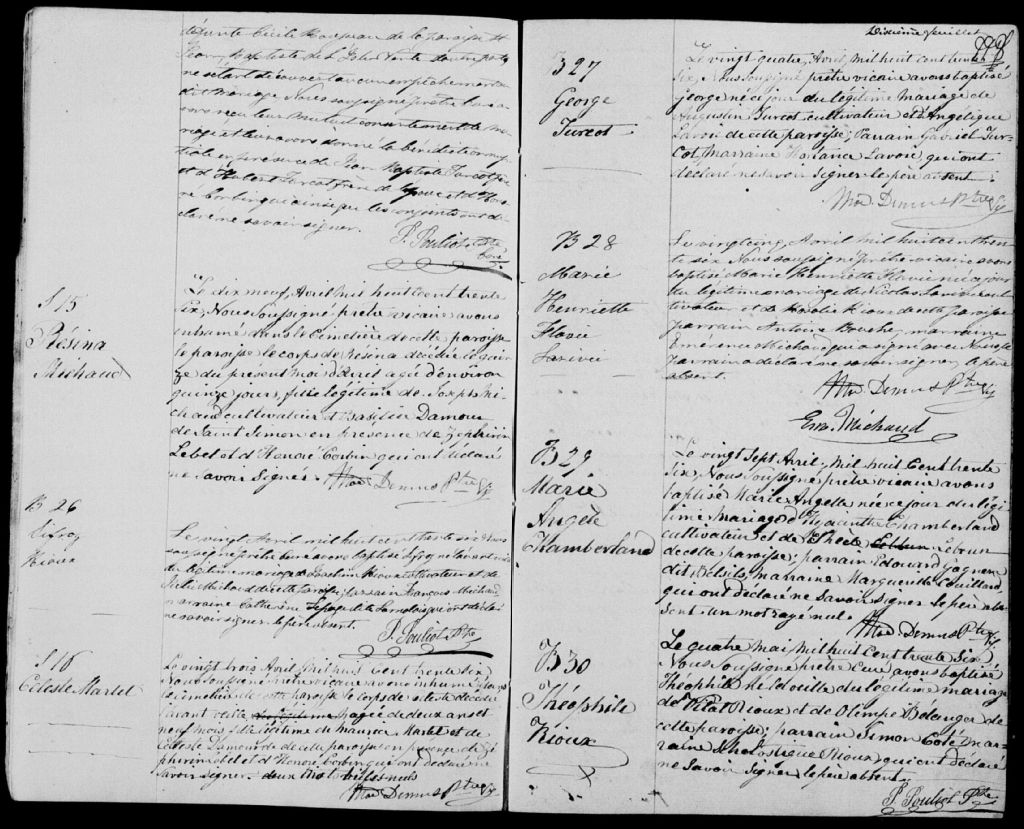 défunte Cécile Rousseau de la Paroisse St
Jean Baptiste de l'Isle Verte d'autre part
ne s'étant découvert aucun empêchement au
dit mariage Nous soussigné prêtre
avons reçu leur mutuel consentement de ma-
riage et leur avons donné la bénédiction nup-
tiale en présence de Jean Baptiste Turcot père
et d'Hubert Turcot frère de l'époux et d'Hono-
ré Corbin qui ainsi que les conjoints ont dé-
claré ne savoir signer.
P. Pouliot Ptre
Curé
S 15
Résina
Michaud
Le dix neuf, Avril mil huit Cent trente
Six, Nous Soussigné prêtre vicaire avons
inhumé dans le Cimetière de cette paroisse
la paroisse le corps de Résina décédée le quin-
ze du présent mois d'Avril agée d'environ
quinze jours, fille légitime de Joseph Mi-
chaud cultivateur et Basilisse Damour
de Saint Simon en présence de Zéphirin
Lebel et d'Honoré Corbin qui ont déclaré
ne Savoir Signer. Mod Demers Ptre Vic
B 26
Sifroy
Rioux
Le vingt Avril mil huit cent trente six nous
soussigné prêtre curé avons baptisé Sifroy né la veille
du légitime mariage de Joselin Rioux cultivateur et de
Julie Michaud de cette paroisse, parrain François Michaud
marraine Catherine Lepage dite Lamolais qui ont déclaré
ne savoir signer, le père absent.
P. Pouliot Ptre
S 16
Céleste Martel
Le vingt trois Avril, mil huit Cent trente Six
Nous Soussigné prêtre vicaire avons inhumé dans
le cimetière de cette paroisse le corps de Céleste décédée
l'avant veille, agée de deux ans et
neuf mois fille légitime de Maurice Martel et de
Céleste Damour de de cette paroisse en présence de Zé-
phirin Lebel et d'Honoré Corbin qui ont déclaré ne
Savoir Signer. deux mots biffés nuls
Mod Demers Ptre Vic
Dixième feuillet
B 27
George
Turcot
Le vingt quatre, Avril, mil huit cent trente
Six, Nous Soussigné prêtre vicaire avons baptisé
George né ce jour du légitime Mariage de
Augustin Turcot cultivateur et d'Angélique
Lavoie de cette paroisse; Parrain Gabriel Tur-
cot, Marraine Constance Lavoie, qui ont
déclaré ne Savoir Signer le père absent.
Mod. Demers Ptre Vic
B 28
Marie
Henriette
Flavie
Larivée
Le vingt cinq, Avril mil huit cent tren-
te six Nous soussigné prêtre vicaire avons
baptisé Marie Henriette Flavie née ce jour
du légitime mariage de Nicolas Larivée cul-
tivateur et de Rosalie Rioux de cette paroisse
parrain Antoine Bouché, marraine
Emérence Michaud qui a signé avec Nous le
Parrain a déclaré ne savoir signer, le père
absent.
Mod Demers Ptre Vic
Em. Michaud
B 29
Marie
Angèle
Chamberland
Le vingt Sept Avril, mil huit Cent trente
Six, Nous Soussigné prêtre vicaire avons
baptisé Marie Angelle née ce jour du légi-
time Mariage d'Hyacinthe Chamberland
cultivateur et de Thècle Lebrun
de cette paroisse; parrain Edouard Gagnon
dit Belisle, marraine Marguerite Couillard
qui ont déclaré ne Savoir Signer le père ab-
sent. un mot rayé nul.
Mod Demers Ptre Vic
B 30
Théophile
Rioux
Le quatre Mai, mil huit Cent trente Six
Nous Soussigné prêtre Curé avons baptisé
Théophile né la veille du légitime mariage
de Rioux et de Olimpe Bélanger de
cette paroisse; parrain Simon Coté Mar-
raine Rioux qui ont déclaré
ne Savoir Signer le père absent.
P. Pouliot Ptre